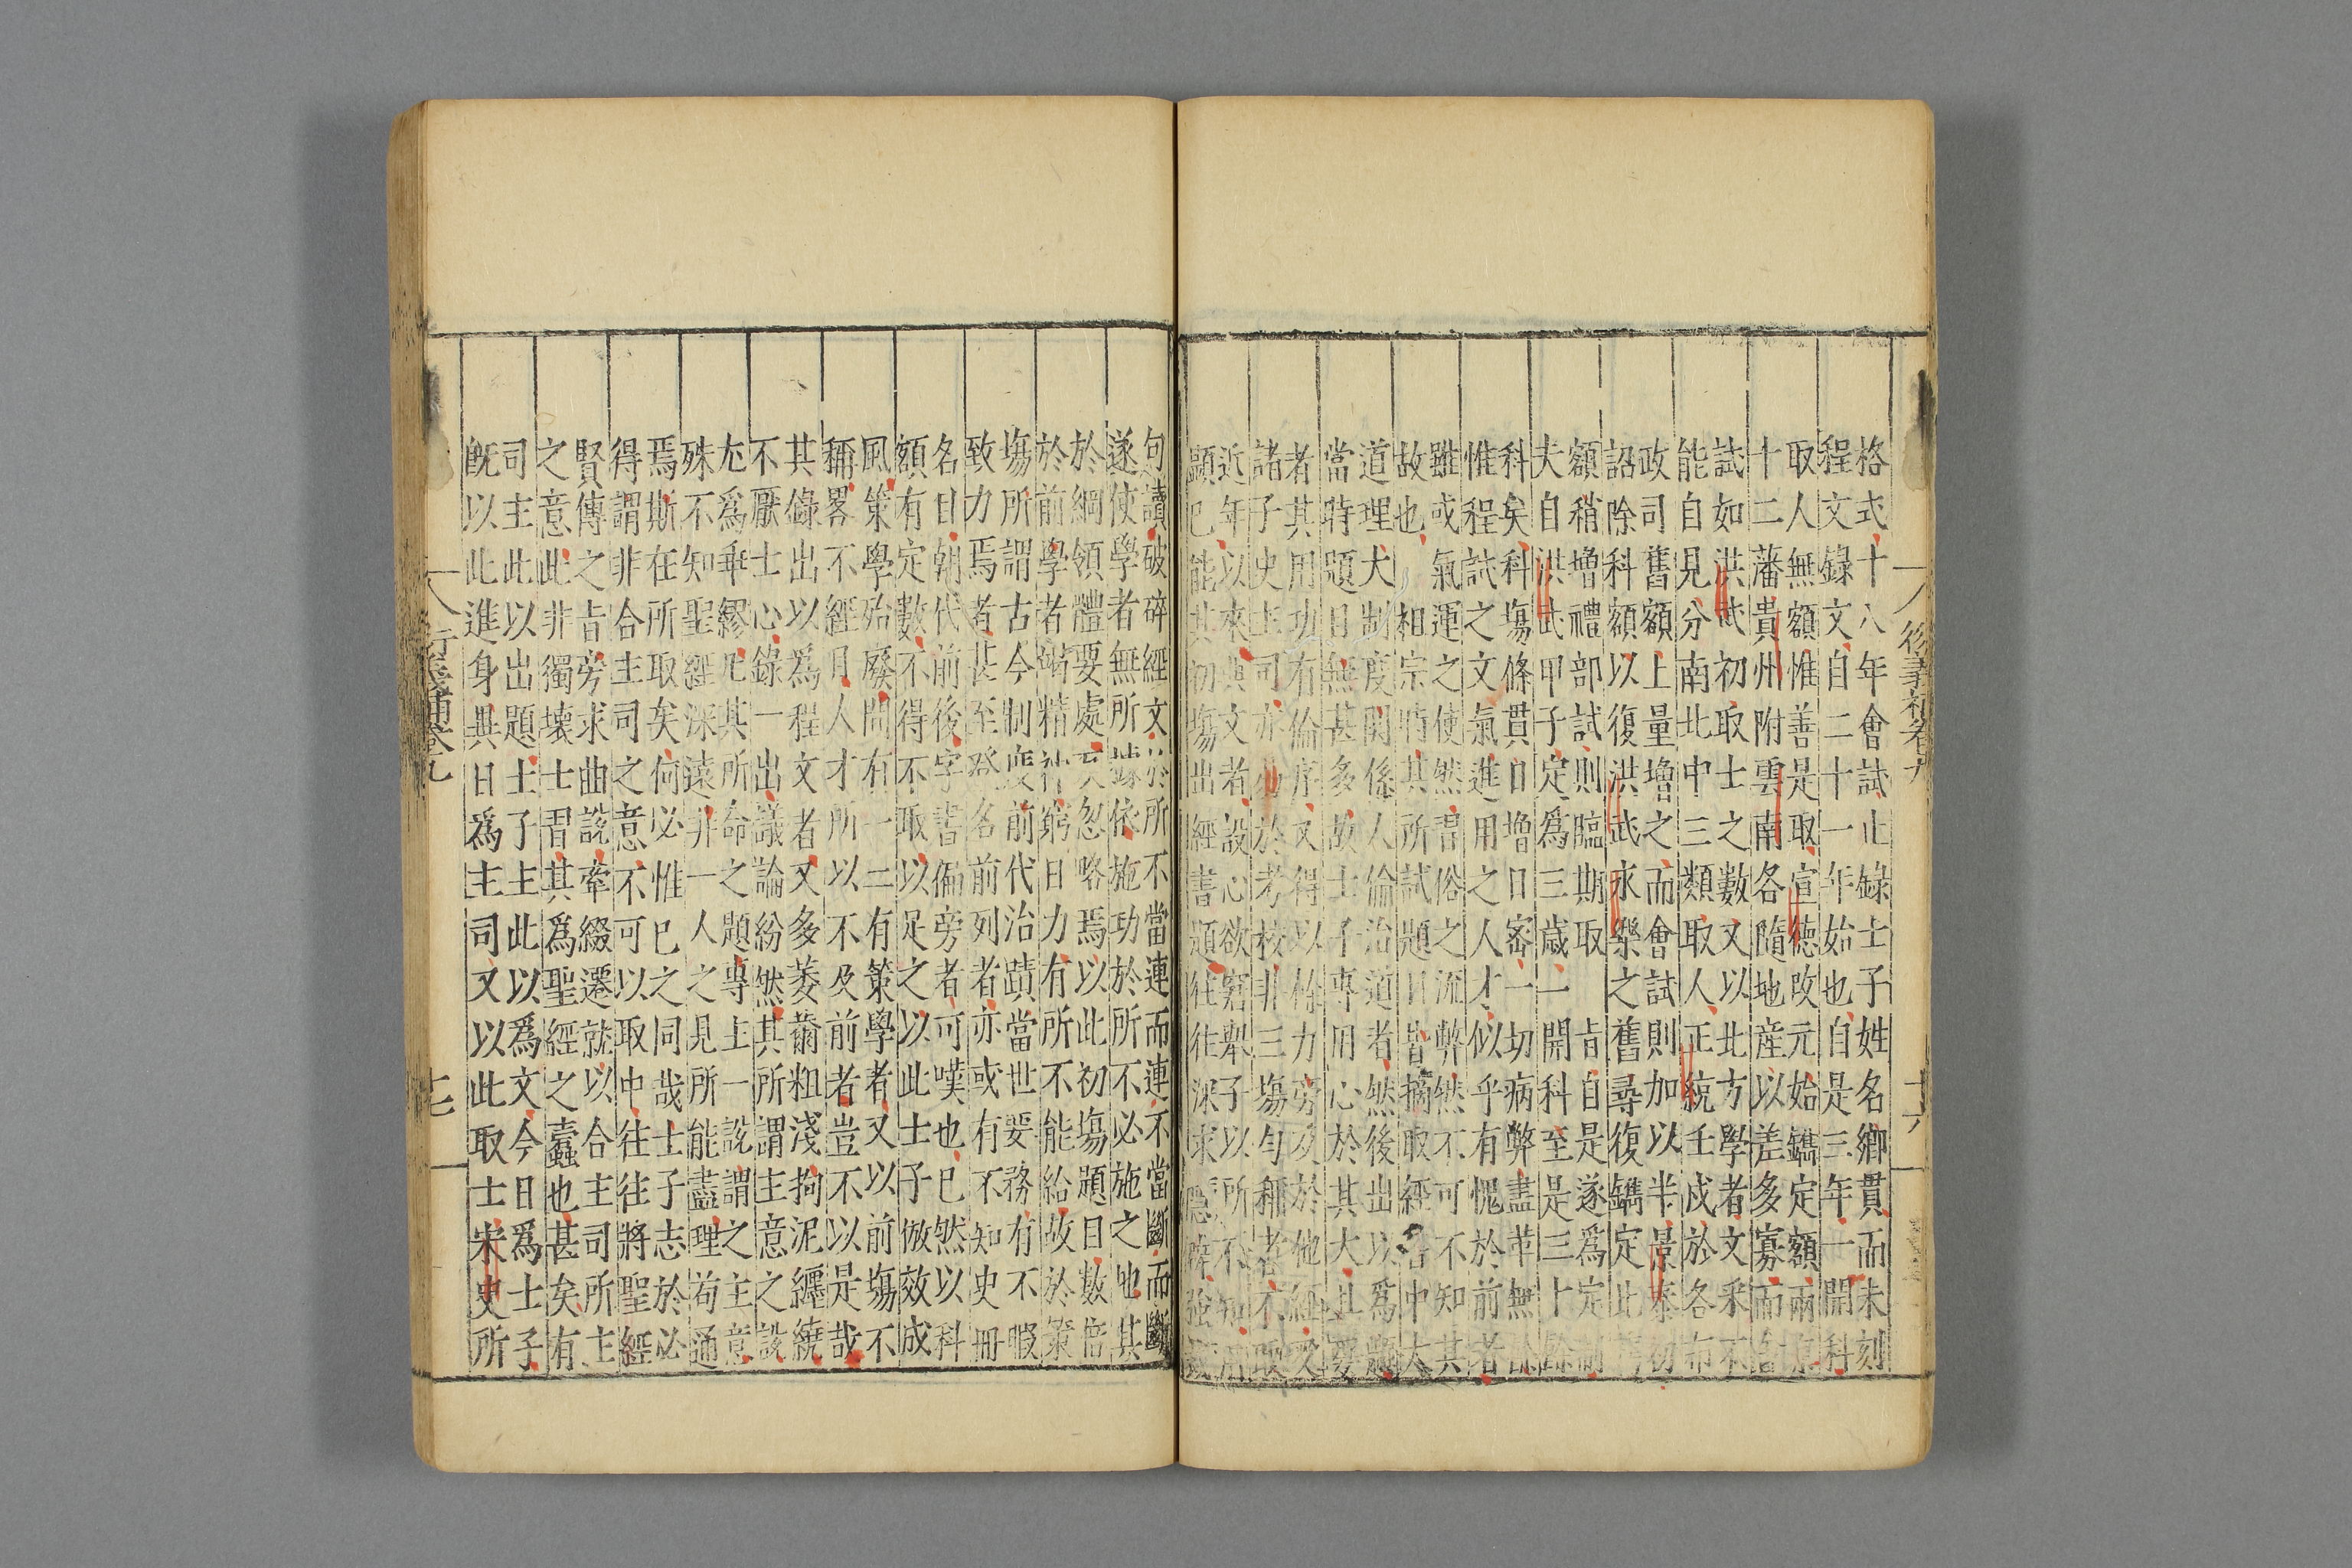 格式十八年會試止錄士子姓名鄉貫而未刻
程文錄文自二十一年始也自是三年一開科
取人無額惟善是取宣德改元始鐫定額兩京
十二藩貴州附雲南各隨地産以差多寡而
試如洪武初取士之數又以北方學者文釆不
能自見分南北中三類取人正統壬戍於各布
政司舊額上量增之而會試則加以半景泰初
詔除科額以復洪武永樂之舊尋復鐫定此
額稍增禮部試則臨期取 旨自是遂爲定
夫自洪武甲子定爲三歲一開科至是三十餘
科矣科塲條貫日增日密一切病弊盡革無餘
惟程試之文氣進用之人才似乎有愧於前者
雖或氣運之使然習俗之流弊然不可不知其
故也 相宗時其所試題目皆摘取經書中大
道理大制度關係人倫治道者然後出以爲題
當時題目無甚多故士子專用心於其大且要
者其用功有倫序又得以餘力旁及於他經及
諸子史主司亦易於考校非三塲勻稱者不取
近年以來典文者設心欲窘舉子以所不知用
顯己能其初塲出經書題徃徃深求隱僻強
句讀破碎經文於所不當連而連不當斷而斷
遂使學者無所據依施功於所不必施之地其
於綱領體要處反忽略焉以此初塲題目數倍
於前學者竭精神窮日力有所不能給故於策
塲所謂古今制度前代治蹟當世要務有不暇
致力焉者甚至登名前列者亦或有不知史冊
名目朝代前後字書偏旁者可嘆也已然以科
額有定數不得不取以足之以此士子倣效成
風策學殆廢間有一二有策學者又以前塲不
稱畧不經月人才所以不及前者豈不以是哉
其錄出以爲程文者又多萎薾粗淺拘泥纏繞
不厭士心錄一出議論紛然其所謂主意之說
尤爲乖繆凡其所命之題專主一說謂之主意
殊不知聖經深遠非一人之見所能盡理苟通
焉斯在所取矣何必惟己之同哉士子志於必
得謂非合主司之意不可以取中往往將聖經
賢傳之旨旁求曲說牽綴遷就以合主司所主
之意此非獨壞士習其爲聖經之蠹也甚矣有
司主此以出題士子主此以爲文今日爲士子
旣以此進身異日爲主司又以此取士宋史所
十六
行義補卷九
十七